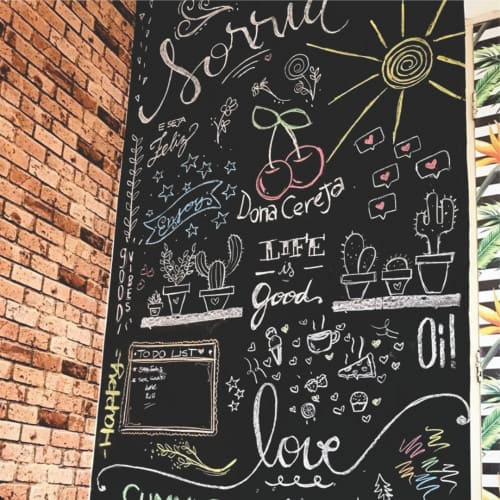 Sorria
E SEJA
Feliz!
Enjoy
Dona Cereja
LIFE
is
Good
GOOD VIBES
Oi!
TO DO LIST
Happy
love